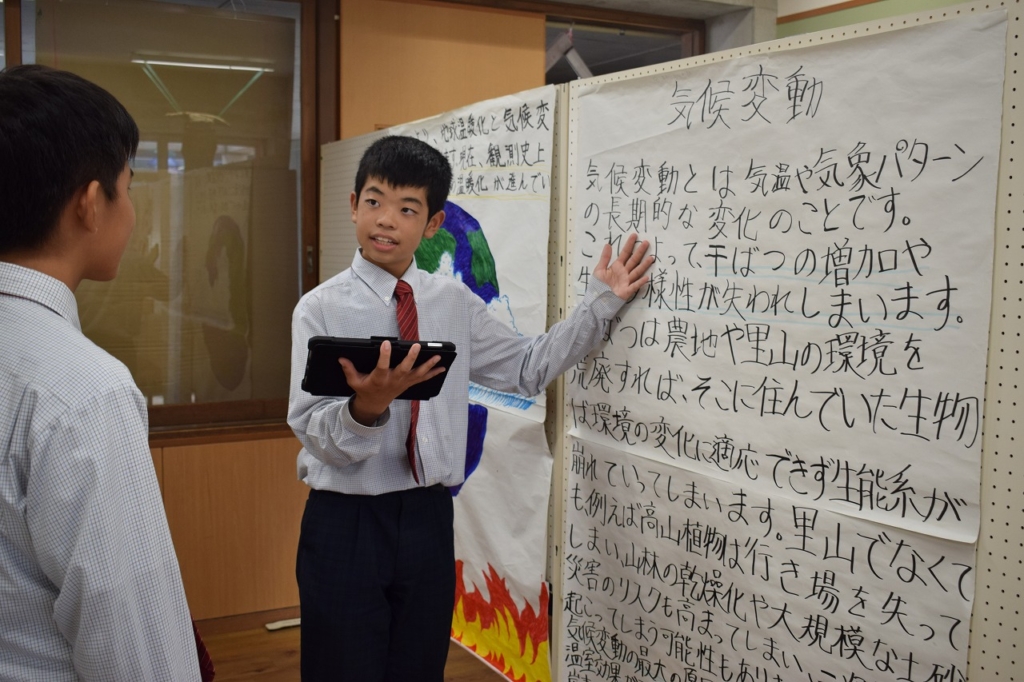 地球温暖化と気候変
現在、観測史上
温暖化が進んでい
気候変動
気候変動とは気温や気象パターン
の長期的な変化のことです。
よって、干ばつの増加や
様性が失われてしまいます。
ばつは農地や里山の環境を
荒廃すれば、そこに住んでいた生物
は環境の変化に適応できず生能系が
崩れていってしまいます。里山でなくて
も、例えば高山植物は行き場を失って
しまい山林の乾燥化や大規模な土砂
災害のリスクも高まってしまい
起こってしまう可能性もあり
気候変動の最大の原
温室効果